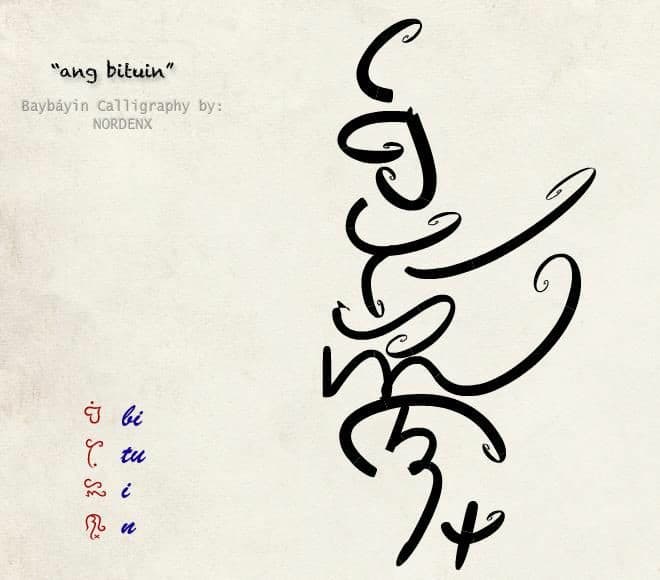 “ang bituin”
Baybáyin Calligraphy by:
NORDENX
ᜊᜒ bi
ᜆᜓ tu
ᜁ i
ᜈ᜔ n